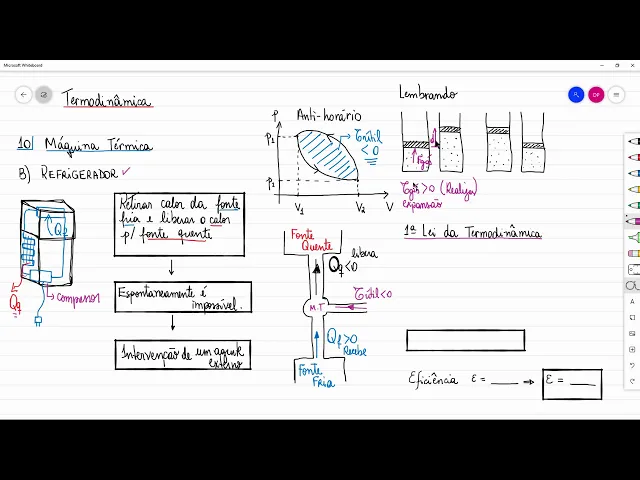 Microsoft Whiteboard
Termodinâmica
10) Máquina Térmica
B) REFRIGERADOR
Retirar calor da fonte
fria e liberar o calor
p/ fonte quente
Espontaneamente é
impossível.
Intervenção de um agente
externo
Qf
Qq
compressor
Anti-horário
P
P1
P2
V1
V2
V
τútil
< 0
Fonte
Quente
libera
Qq < 0
M.T
τútil < 0
Qf > 0
Recebe
Fonte
Fria
Lembrando
d
Fgás
τgás > 0 (Realiza)
expansão
1ª Lei da Termodinâmica
Eficiência ε = ____ → ε = ____
DP